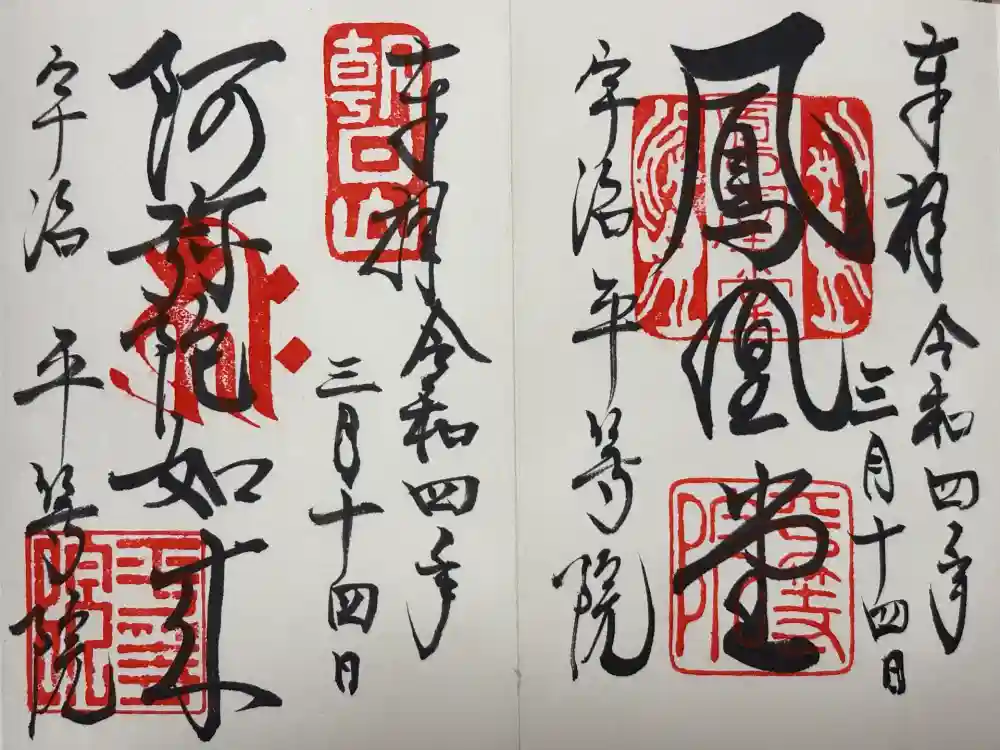 奉拝 令和四年
三月十四日
鳳凰堂
宇治 平等院
奉拝 令和四年
三月十四日
朝日山
阿弥陀如来
宇治 平等院
平等院